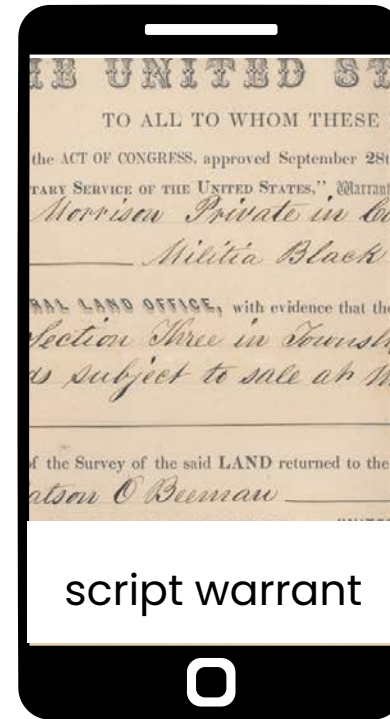 HE UNITED ST
TO ALL TO WHOM THESE
the ACT OF CONGRESS, approved September 28t
TARY SERVICE OF THE UNITED STATES," Warrant
Morrison Private in
Militia Black
RAL LAND OFFICE, with evidence that the
Section Three in Townsh
ds subject to sale at
of the Survey of the said LAND returned to the
atson O Beeman
script warrant